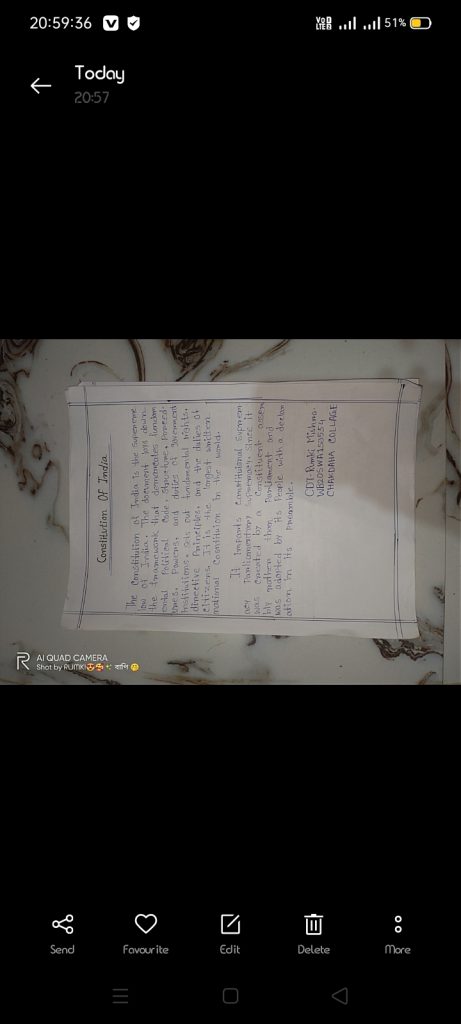 20:59:36
Vo LTE 51%
Today
20:57
Constitution Of India
The Constitution of India is the supreme
law of India. The document lays down
the framework that demarcates fundam
ental Political code, structure, Proced-
ures, Powers, and duties of government
Institutions, sets out fundamental rights,
directive Principles, and the duties of
citizens. It is the longest written
national Constitution in the world.
It imparts constitutional suprem
acy Parliamentary supremacy, since it
was created by a Constituent assem
bly than Parliament and
was adopted by its People with a declar
ation in its preamble.
CDT
CHAKDAHA COLLAGE
AI QUAD CAMERA
Shot by RUMKI😍🥰✨ বাপি 😊
Send
Favourite
Edit
Delete
More